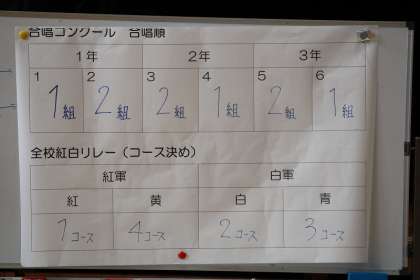 合唱コンクール 合唱順
1年 2年 3年
1 2 3 4 5 6
1組 2組 2組 1組 2組 1組
全校紅白リレー(コース決め)
紅軍 白軍
紅 黄 白 青
1コース 4コース 2コース 3コース